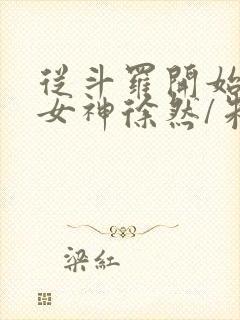 從斗羅開始
女神徐然/朱
梁紅